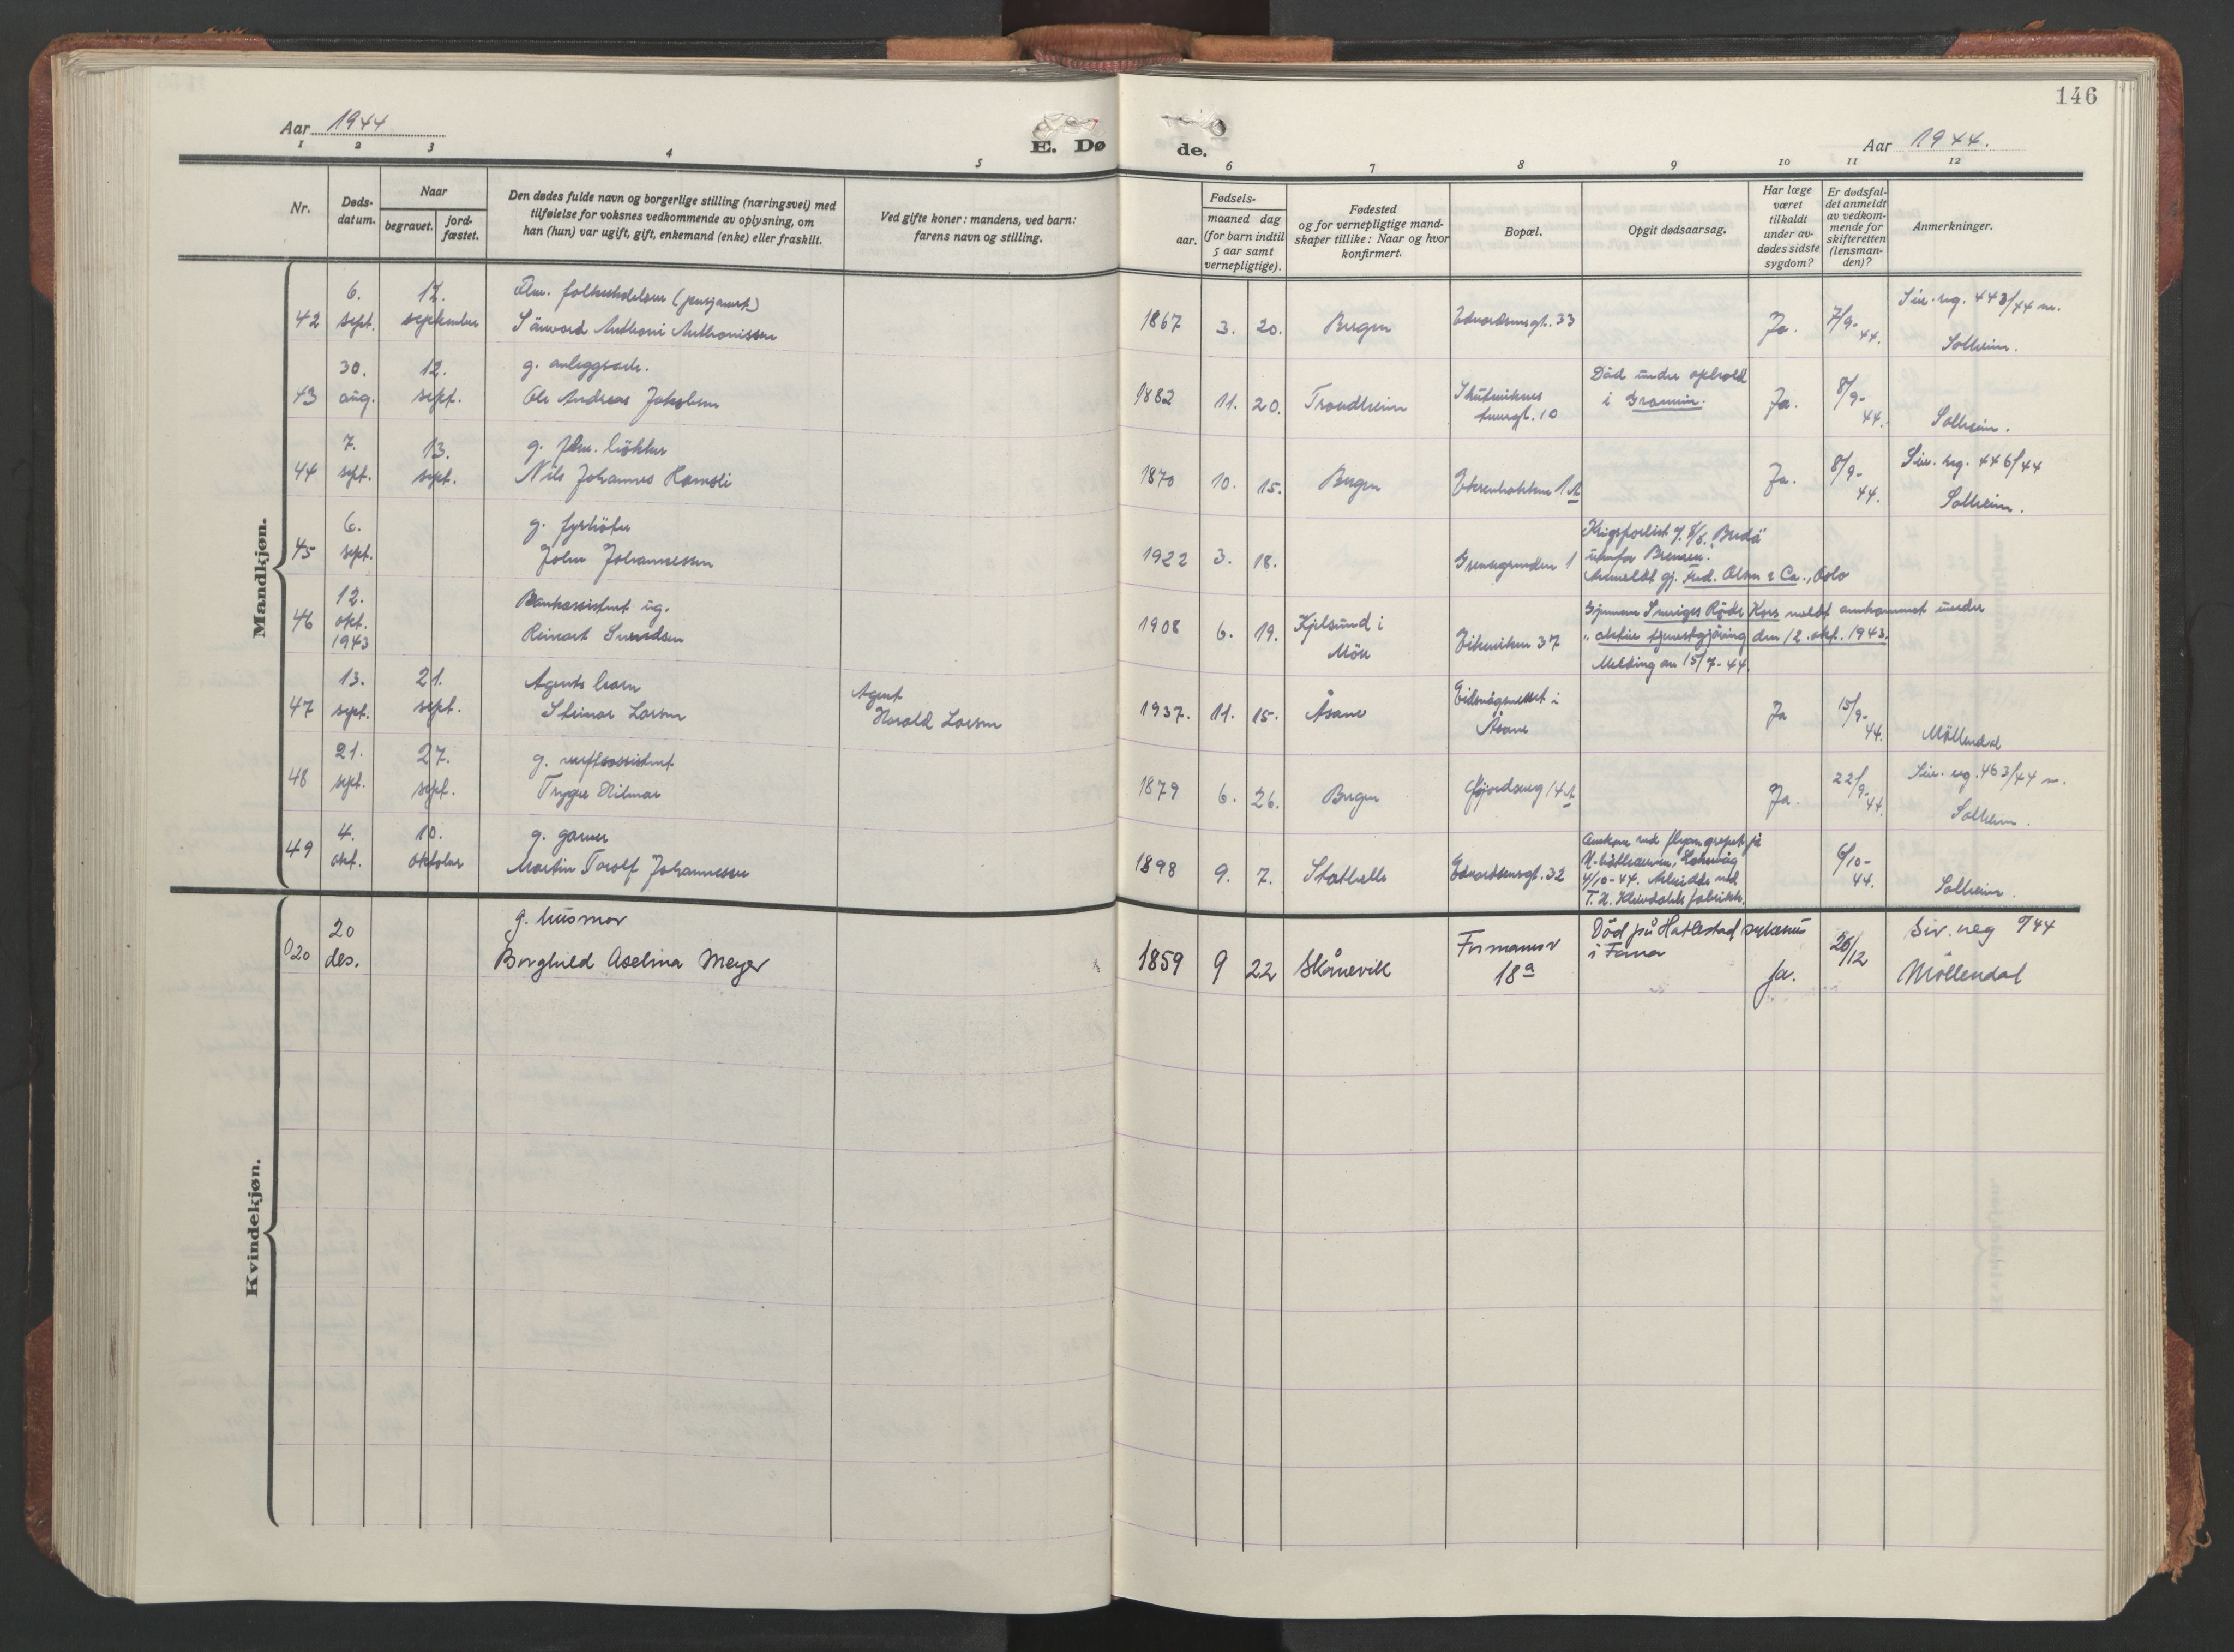 146
Aar 1944
E. Dø
de.
Aar 1944.
1 2 3 4 5 6 7 8 9 10 11 12
Nr.
Døds-
datum.
Naar
begravet.
jord-
fæstet.
Den dødes fulde navn og borgerlige stilling (næringsvei) med
tilføielse for voksnes vedkommende av oplysning, om
han (hun) var ugift, gift, enkemand (enke) eller fraskilt.
Ved gifte koner: mandens, ved barn:
farens navn og stilling.
Fødsels-
aar.
maaned dag
(for barn indtil
5 aar samt
vernepligtige).
Fødested
og for vernepligtige mand-
skaper tillike: Naar og hvor
konfirmert.
Bopæl.
Opgit dødsaarsag.
Har læge
været
tilkaldt
under av-
dødes sidste
sygdom?
Er dødsfal-
det anmeldt
av vedkom-
mende for
skifteretten
(lensman-
den)?
Anmerkninger.
Mandkjøn.
42
6.
sept.
12.
september
Anthoni Anthonissen
1867 3. 20. Bergen
Edvardsensgt. 33
Ja.
7/9-
44.
443/44 m.
Solheim.
43
30.
aug.
12.
sept.
g. anleggsarb.
Ole Andreas Jakobsen
1882 11. 20. Trondheim
10
Död under ophold
i Granvin.
Ja.
8/9-
44.
Solheim.
44
7.
sept.
13.
sept.
g.
Nils Johannes Ramsli
1870 10. 15. Bergen
Ja.
8/9-
44.
Siv. reg. 446/44
Solheim.
45
6.
sept.
g. fyrböter
John Johannessen
1922 3. 18.
1
Krigsforlist
utenfor Bremen.
Anmeldt gj. Fred. Olsen & Co., Oslo
46
12.
okt.
1943
Bankassistent ug.
Reinert Svendsen
1908 6. 19.
i
37
Gjennem Sveriges Röde Kors meldt omkommet under
"aktiv tjenestgjöring den 12. okt. 1943.
Melding av 15/7-44.
47
13.
sept.
21.
sept.
Agents barn
Steinar Larsen
Agent
Harald Larsen
1937. 11. 15. Åsane
Eidsvågneset i
Åsane
Ja
15/9-
44.
Möllendal
48
21.
sept.
27.
sept.
g.
Trygve Hilmar
1879 6. 26. Bergen
14 A
Ja.
22/9-
44.
Siv. reg. 463/44 m.
Solheim.
49
4.
okt.
10.
oktober
g. garver
Martin Torolf Johannessen
1898 9. 7. Stathelle
Edvardsensgt. 32
Omkom ved flyangrepet på
U-båtbasen, Laksevåg
4/10-44. Arbeidde ved
fabrikk.
6/10-
44.
Solheim.
Kvindekjøn.
020
20
des.
g. husmor
Borghild Aselina Meyer
1859 9 22 Skånevik
Formannsv
18a
Död på Hatlestad sykehus
i Fana
Ja.
26/12
Siv. reg 9/44
Möllendal